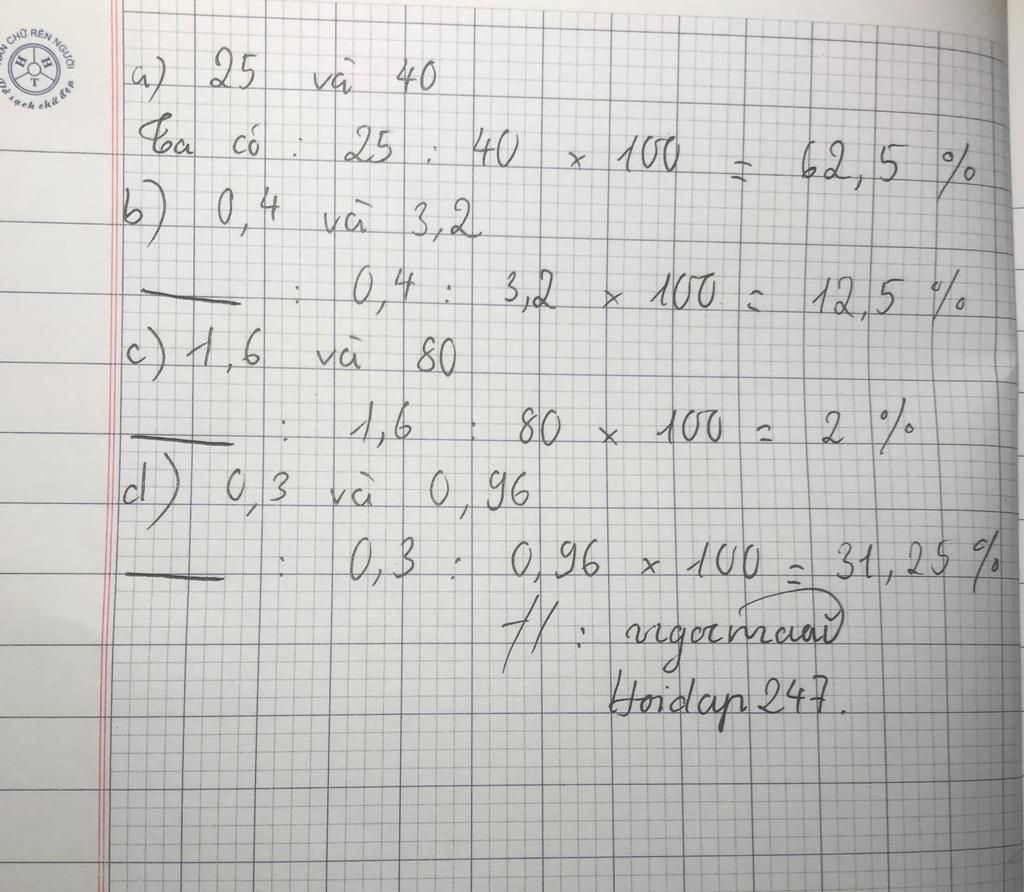 ÂN CHỮ RÈN NGƯỜI
H H T
Vở sạch chữ đẹp
a) 25 và 40
Ta có : 25 : 40 × 100 = 62,5 %
b) 0,4 và 3,2
: 0,4 : 3,2 × 100 = 12,5 %
c) 1,6 và 80
: 1,6 : 80 × 100 = 2 %
d) 0,3 và 0,96
: 0,3 : 0,96 × 100 = 31,25 %
Hoidap247.